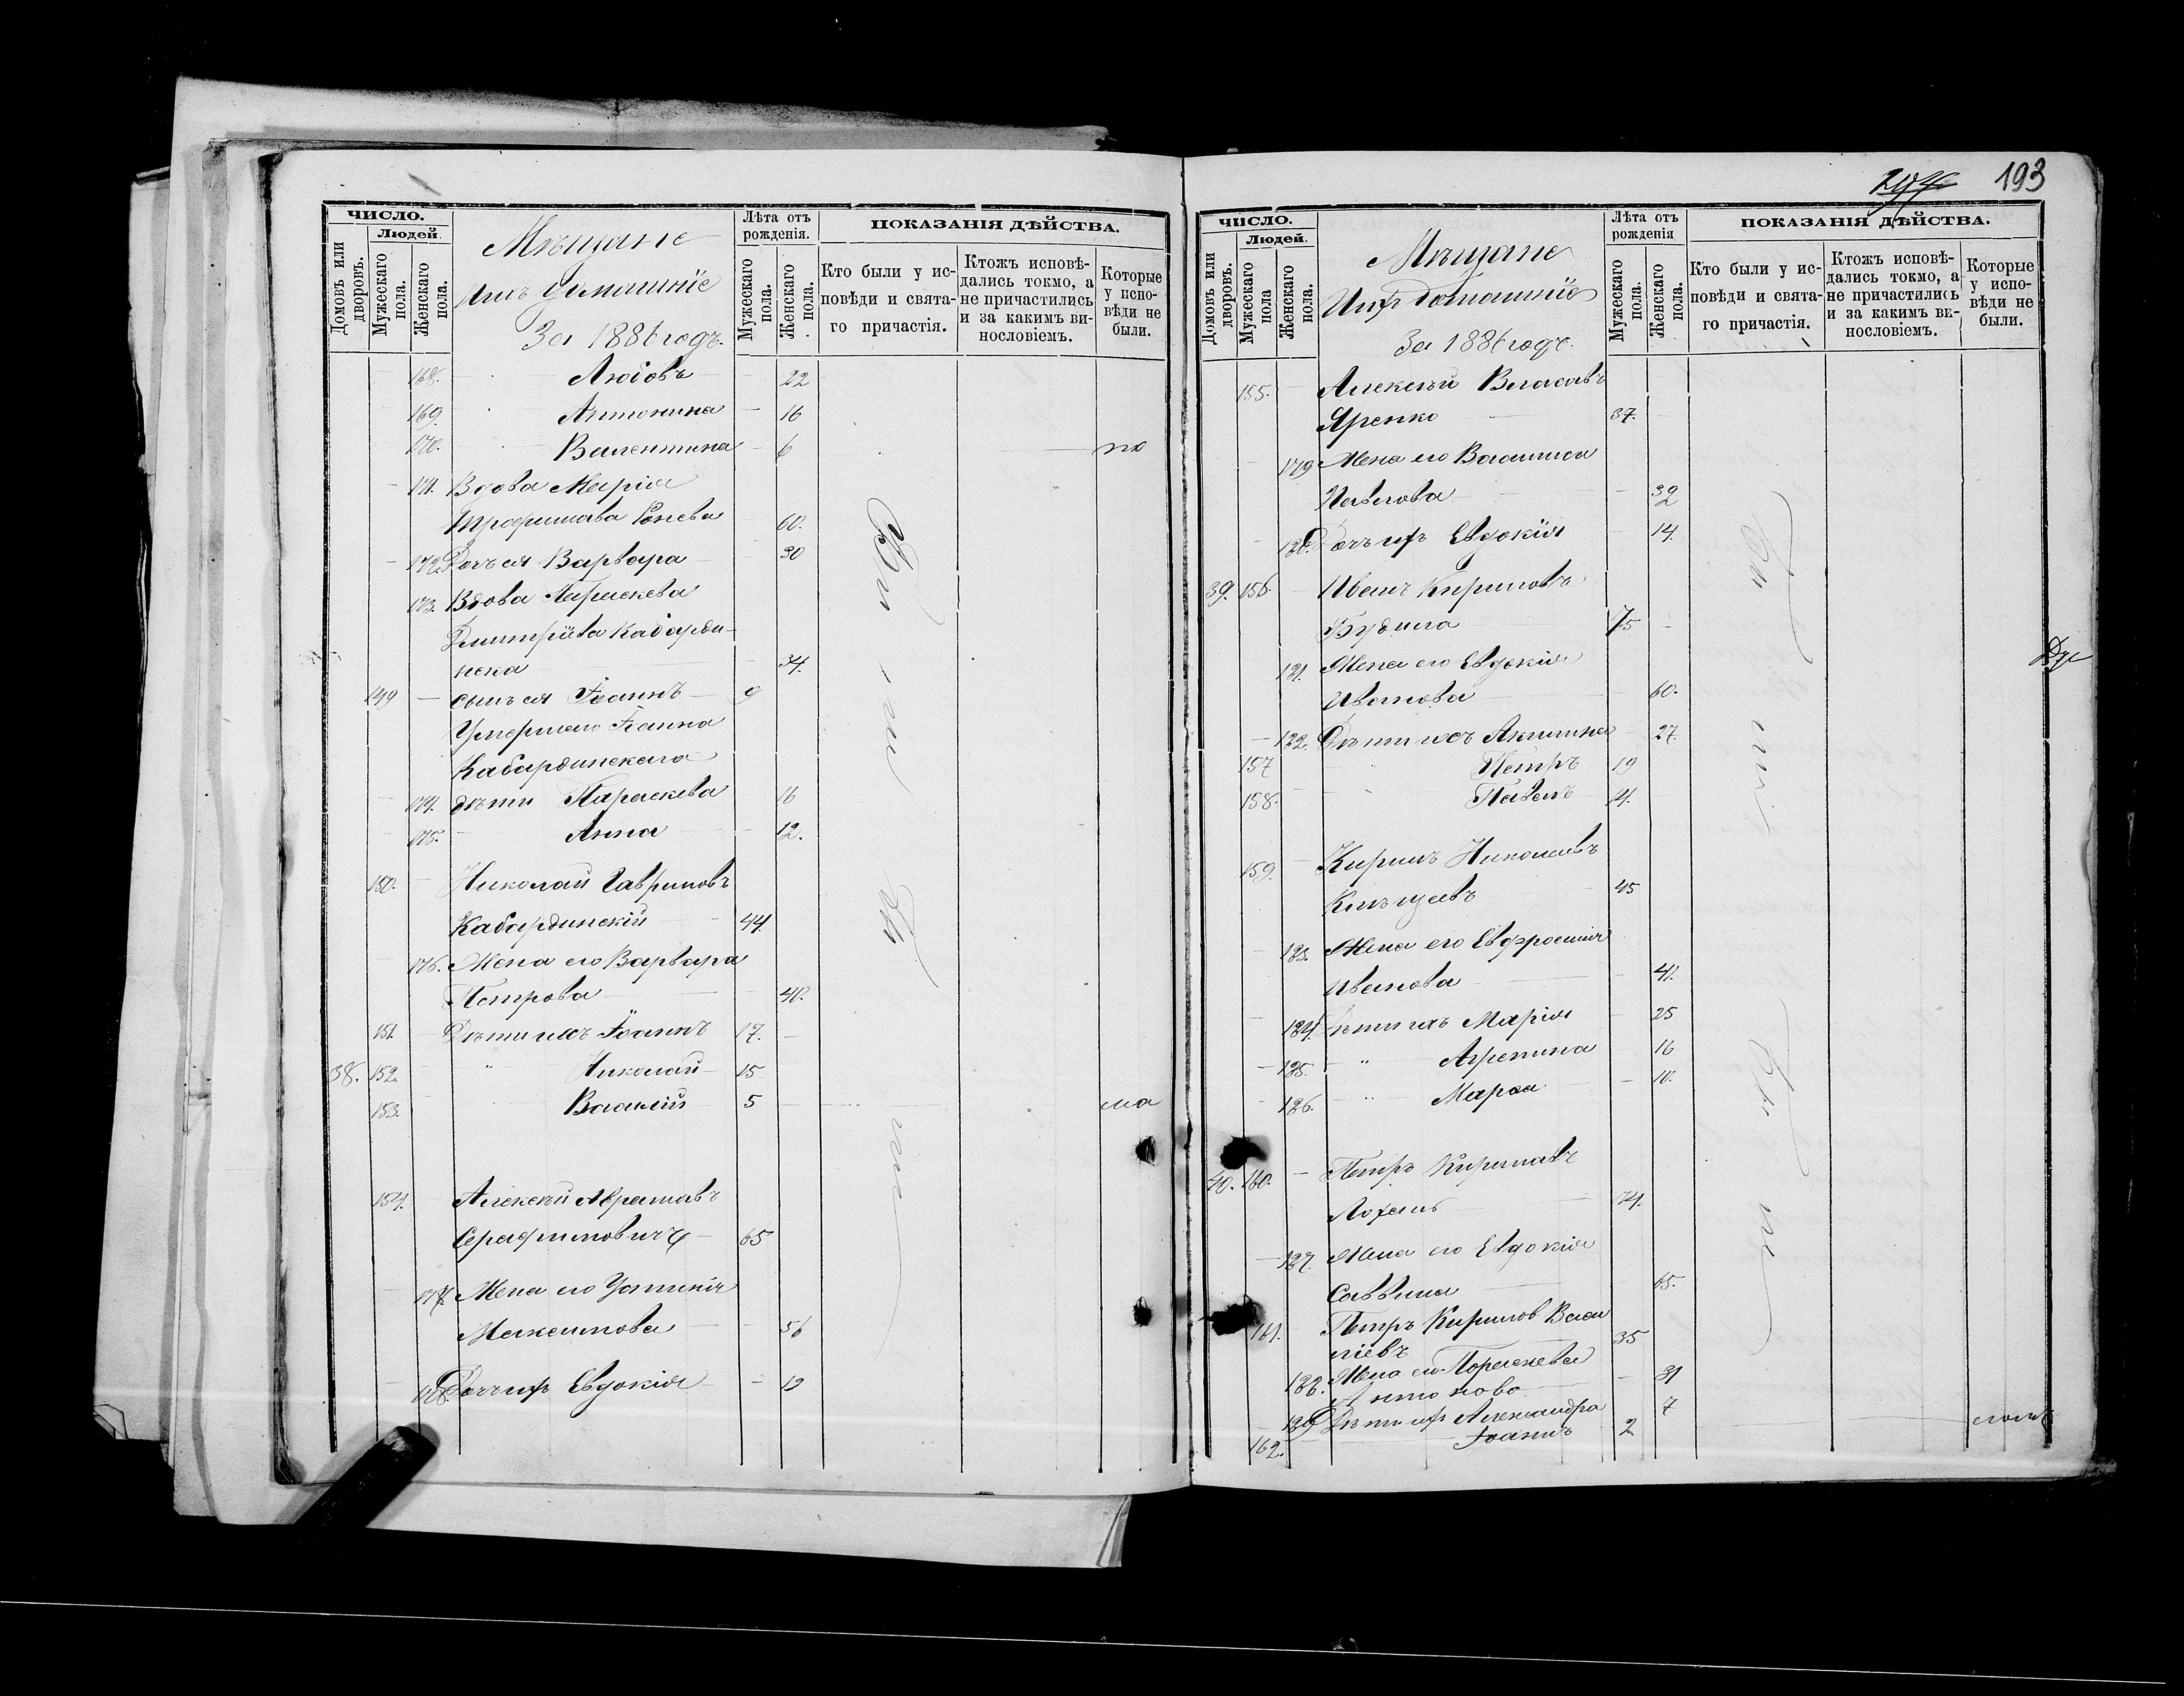 193
ЧИСЛО.
Людей.
Домовъ или дворовъ.
Мужескаго пола.
Женскаго пола.
Мѣщане
ихъ домашніе
За 1886 годъ.
Лѣта отъ рожденія.
Мужескаго пола.
Женскаго пола.
ПОКАЗАНІЯ ДѢЙСТВА.
Кто были у исповѣди и святаго причастія.
Ктожъ исповѣдались токмо, а не причастились и за какимъ винословіемъ.
Которые у исповѣди не были.
168. Любовь 22
169. Антонина 16
170. Валентина 6
171. Вдова Марія
Трофимова 60.
172. Дочь ея Варвара 30
173. Вдова Параскева
Димитріева Кабардин-
ска 34.
149 сынъ ея Іоаннъ 9
Умершаго Іоанна
Кабардинскаго
174. дѣти Параскева 16
175. Анна 12.
150. Николай Гавриловъ
Кабардинскій 44.
176. Жена его Варвара
Петрова 40.
151. Дѣти ихъ Іоаннъ 17.
38. 152. " Николай 15
153. " Василій 5
154. Алексѣй Аврамовъ
Серафимовичъ 65
177. Жена его Устинія
Максимова 56
178. Дочь ихъ Евдокія 19
Были у
ЧИСЛО.
Людей.
Домовъ или дворовъ.
Мужескаго пола
Женскаго пола.
Мѣщане
Ихъ домашніе
За 1886 годъ.
Лѣта отъ рожденія
Мужескаго пола.
Женскаго пола.
ПОКАЗАНІЯ ДѢЙСТВА.
Кто были у исповѣди и святаго причастія.
Ктожъ исповѣдались токмо, а не причастились и за какимъ винословіемъ.
Которые у исповѣди не были.
155. Алексѣй Власовъ
Яренко 37.
179 Жена его Василиса
Павлова 39
180. Дочь ихъ Евдокія 14.
39. 156. Иванъ Кириловъ
75
181. Жена его Евдокія
Иванова 60.
182. Дѣти ихъ Акилина 27.
157 " Петръ 19
158. " Павелъ 14.
159. Кирилъ Николаевъ
45
183. Жена его Евфросинія
Иванова 41.
184. Дѣти ихъ Марія 25
185. " Агрепина 16
186. " Марѳа 10.
40. 160. Петръ Кириловъ
74.
187. Жена его Евдокія
Саввина 65.
161. Петръ Кириловъ Васи
ліевъ 35
188. Жена его Пораскева
Антонова 31
189 Дѣти ихъ Александра 7
162. Іоаннъ 2